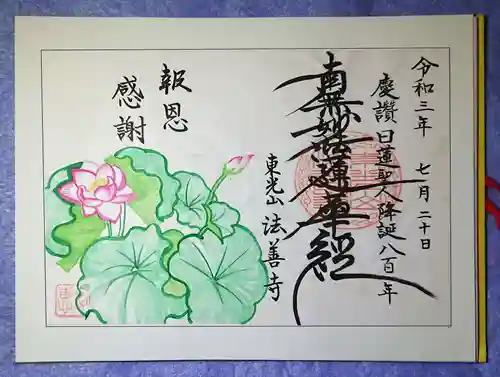 令和三年 七月二十日
慶讃日蓮聖人降誕八百年
南無妙法蓮華経
東光山 法善寺
報恩
感謝